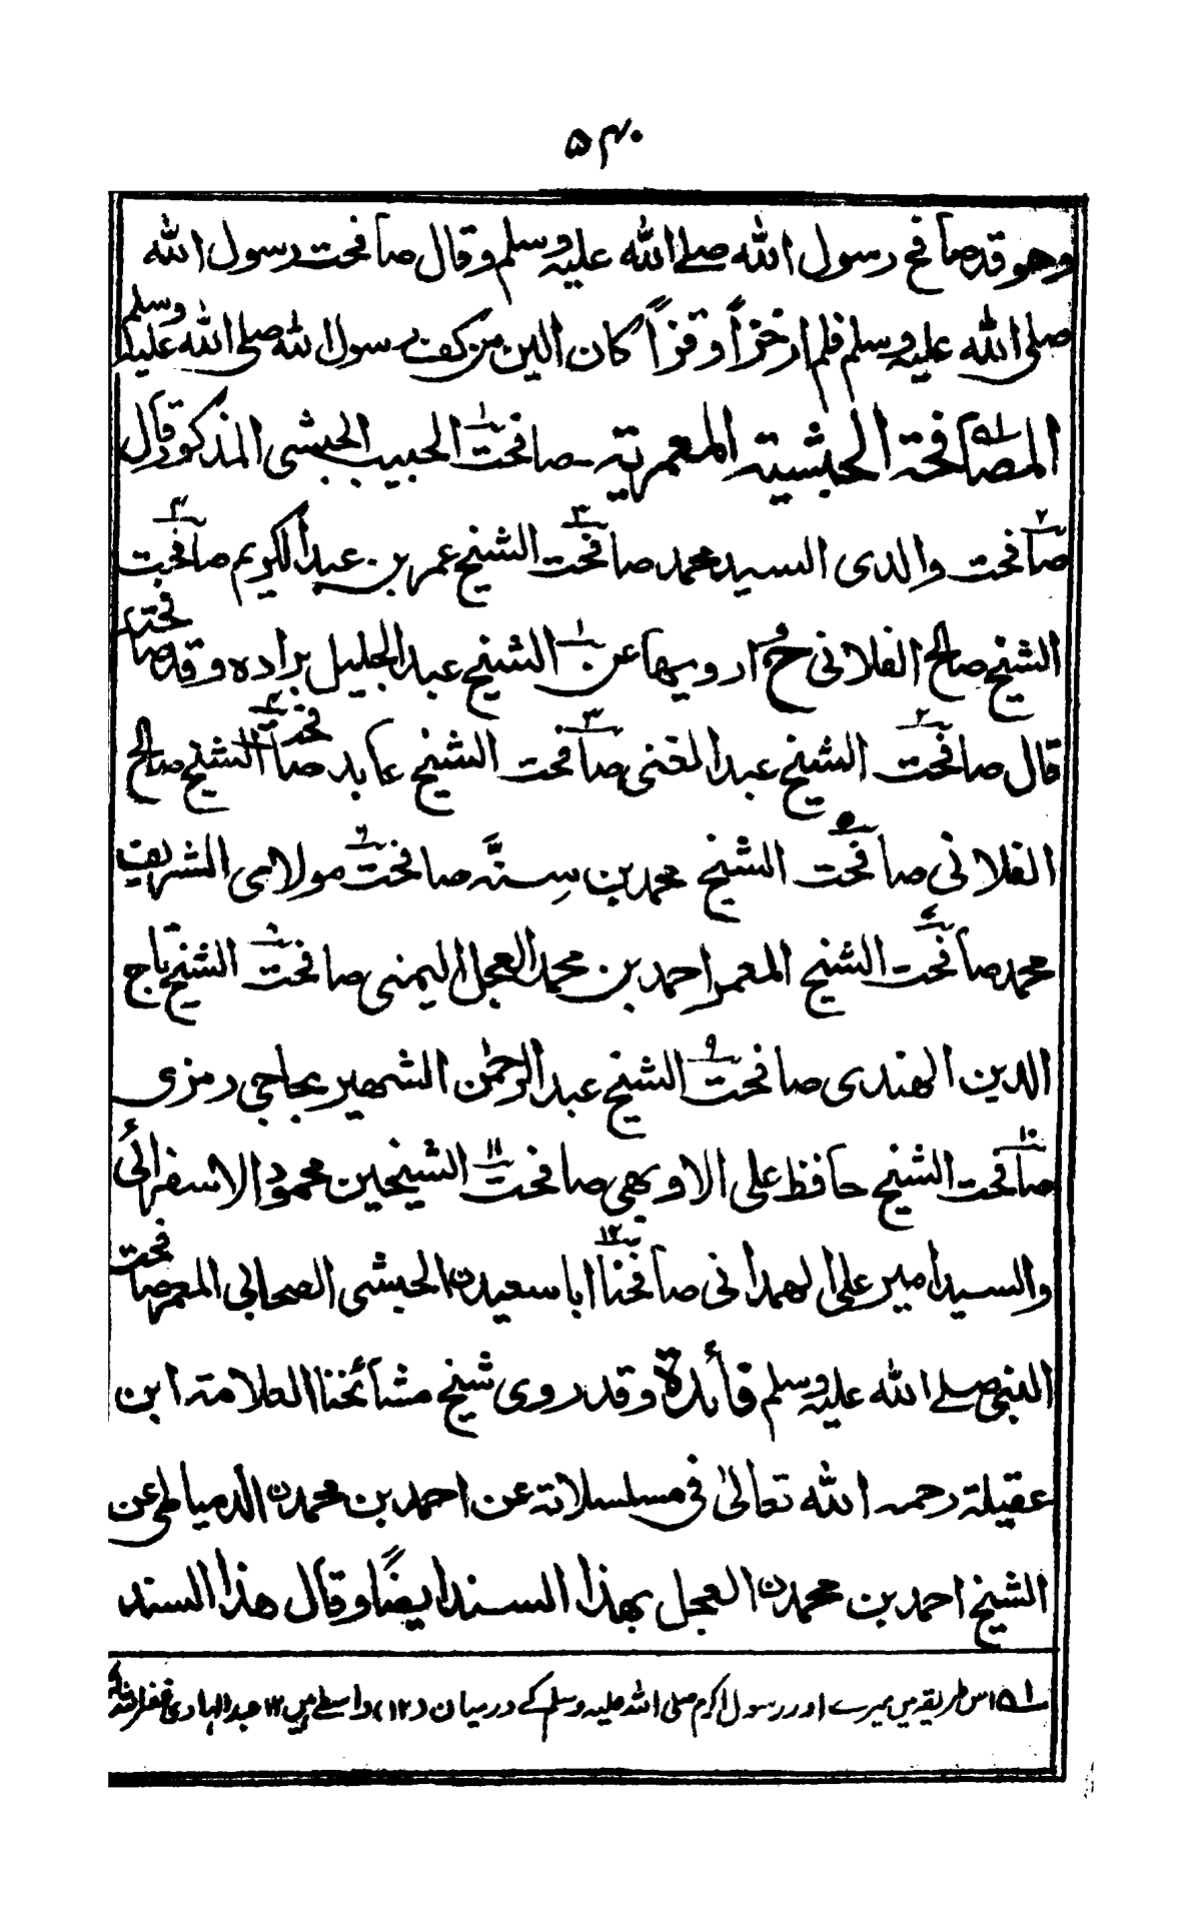 ۵۴۰
وهو قد صافح رسول الله صلے الله عليه وسلم وقال صافحت رسول الله
صلى الله عليه وسلم فلم ار خزاً و قزاً كان الين من كف رسول الله صلى الله عليه وسلم
المصافحة الحبشية المعمرية ـ صافحت الحبيب الحبشى المذكور قال
صافحت والدى السيد محمد صافحت الشيخ عمر بن عبد الكريم صافحت
الشيخ صالح الفلانى ح و ارويها عن الشيخ عبد الجليل براده وقد صافحته
قال صافحت الشيخ عبد الغنى صافحت الشيخ عابد صافحت الشيخ صالح
الفلانى صافحت الشيخ محمد بن سِنَّه صافحت مولاى الشريف
محمد صافحت الشيخ المعمر احمد بن محمد العجل اليمنى صافحت الشيخ تاج
الدين الهندى صافحت الشيخ عبد الرحمٰن الشهير بحاجى رمزى
صافحت الشيخ حافظ على الاوبهى صافحت الشيخين محمود الاسفرائى
والسيد امير على الهمدانى صافحنا ابا سعيدن الحبشى الصحابى المعمر صافحت
النبى صلے الله عليه وسلم فأئدة وقد روى شيخ مشائخنا العلامة ابن
عقيلة رحمه الله تعالىٰ فى مسلسلاته عن احمد بن محمدن الدمياطى عن
الشيخ احمد بن محمدن العجل بهذا السند ايضاً وقال هذا السند
۱۵ اس طریقہ میں میرے اور رسول اکرم صلی اللہ علیہ وسلم کے درمیان (۱۲) واسطے ہیں ۱۲ عبد الہادی غفر اللہ لہ